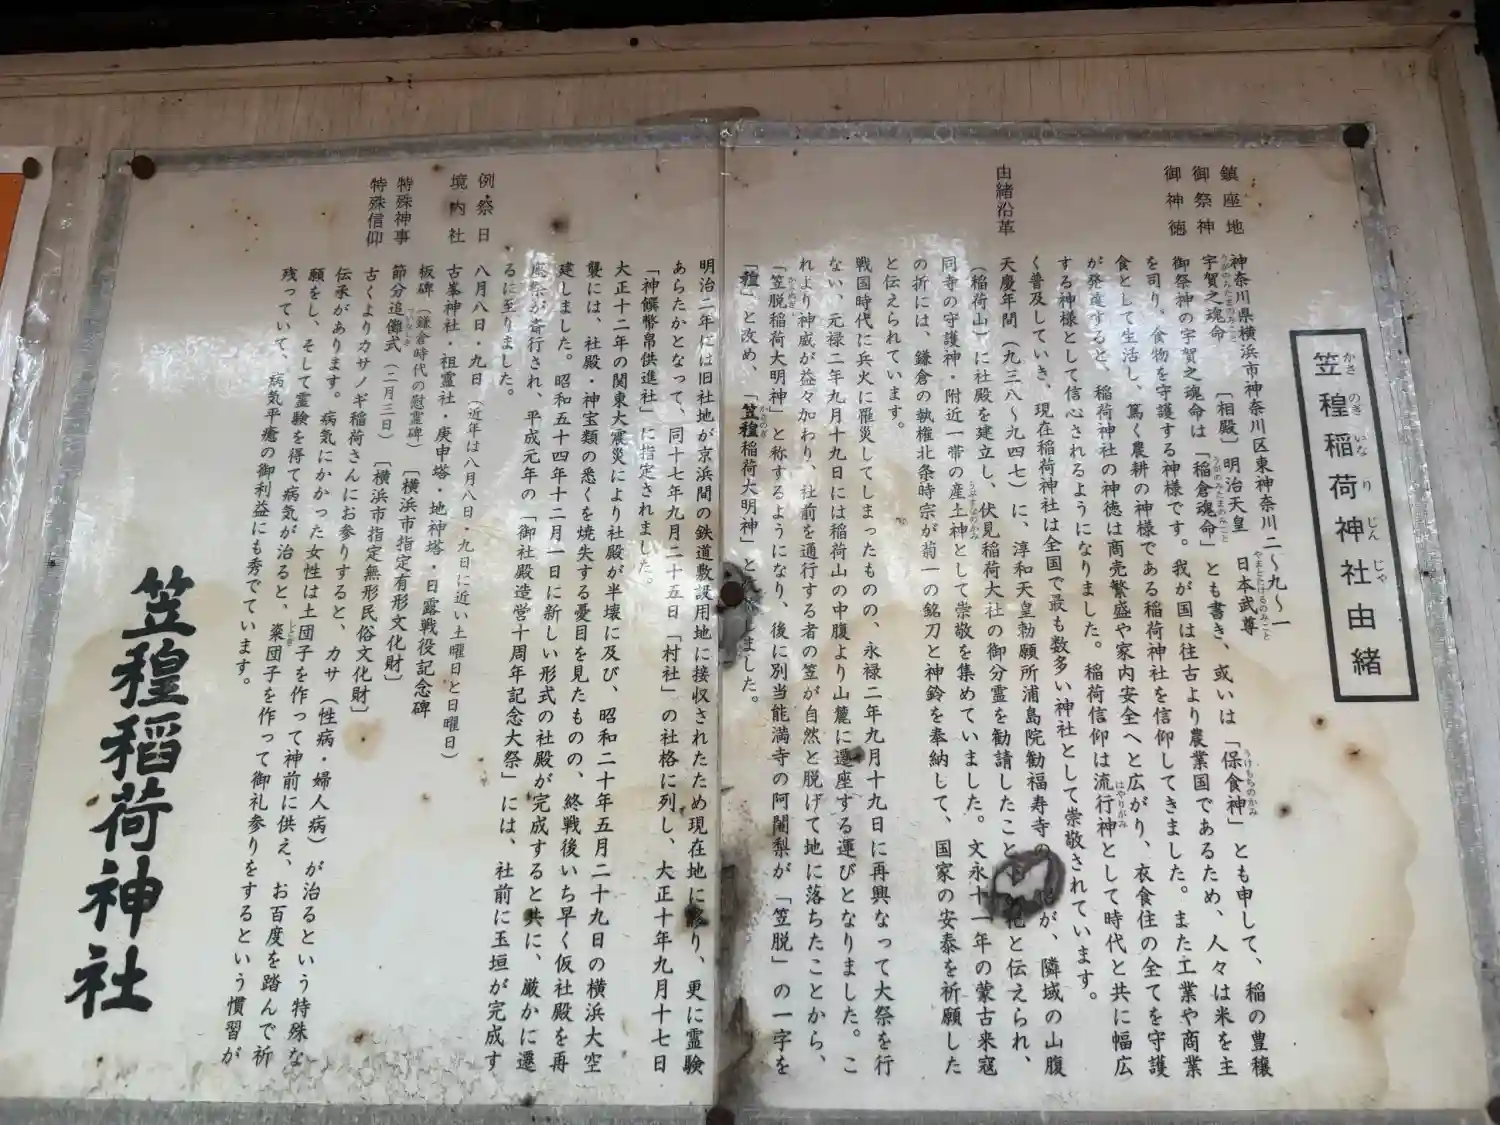 笠䅣稲荷神社由緒
かさのぎいなりじんじゃ
鎮座地
神奈川県横浜市神奈川区東神奈川二〜九〜一
御祭神
宇賀之魂命 〔相殿〕明治天皇 日本武尊
うがのみたまのみこと
やまとたけるのみこと
御神徳
御祭神の宇賀之魂命は「稲倉魂命」とも書き、或いは「保食神」とも申して、稲の豊穣
うがのみたまのみこと
うけもちのかみ
を司り、食物を守護する神様です。我が国は往古より農業国であるため、人々は米を主
食として生活し、篤く農耕の神様である稲荷神社を信仰してきました。また工業や商業
が発達すると、稲荷神社の神徳は商売繁盛や家内安全へと広がり、衣食住の全てを守護
する神様として信心されるようになりました。稲荷信仰は流行神として時代と共に幅広
はやりがみ
く普及していき、現在稲荷神社は全国で最も数多い神社として崇敬されています。
由緒沿革
天慶年間（九三八〜九四七）に、淳和天皇勅願所浦島院勧福寿寺の が、隣域の山腹
（稲荷山）に社殿を建立し、伏見稲荷大社の御分霊を勧請したこと と伝えられ、
同寺の守護神・附近一帯の産土神として崇敬を集めていました。文永十一年の蒙古来寇
うぶすなのかみ
の折には、鎌倉の執権北条時宗が菊一の銘刀と神鈴を奉納して、国家の安泰を祈願した
と伝えられています。
戦国時代に兵火に罹災してしまったものの、永禄二年九月十九日に再興なって大祭を行
ない、元禄二年九月十九日には稲荷山の中腹より山麓に遷座する運びとなりました。こ
れより神威が益々加わり、社前を通行する者の笠が自然と脱げて地に落ちたことから、
「笠脱稲荷大明神」と称するようになり、後に別当能満寺の阿闍梨が「笠脱」の一字を
かさぬぎ
「䅣」と改め、「笠䅣稲荷大明神」と しました。
かさのぎ
明治二年には旧社地が京浜間の鉄道敷設用地に接収されたため現在地に移り、更に霊験
あらたかとなって、同十七年九月二十五日「村社」の社格に列し、大正十年九月十七日
「神饌幣帛供進社」に指定されました。
大正十二年の関東大震災により社殿が半壊に及び、昭和二十年五月二十九日の横浜大空
襲には、社殿・神宝類の悉くを焼失する憂目を見たものの、終戦後いち早く仮社殿を再
建しました。昭和五十四年十二月一日に新しい形式の社殿が完成すると共に、厳かに遷
座祭が斎行され、平成元年の「御社殿造営十周年記念大祭」には、社前に玉垣が完成す
るに至りました。
例祭日
八月八日・九日（近年は八月八日・九日に近い土曜日と日曜日）
境内社
古峯神社・祖霊社・庚申塔・地神塔・日露戦役記念碑
板碑（鎌倉時代の慰霊碑）〔横浜市指定有形文化財〕
特殊神事
節分追儺式（二月三日）〔横浜市指定無形民俗文化財〕
特殊信仰
古くよりカサノギ稲荷さんにお参りすると、カサ（性病・婦人病）が治るという特殊な
伝承があります。病気にかかった女性は土団子を作って神前に供え、お百度を踏んで祈
願をし、そして霊験を得て病気が治ると、粢団子を作って御礼参りをするという慣習が
しとぎ
残っていて、病気平癒の御利益にも秀でています。
笠䅣稲荷神社